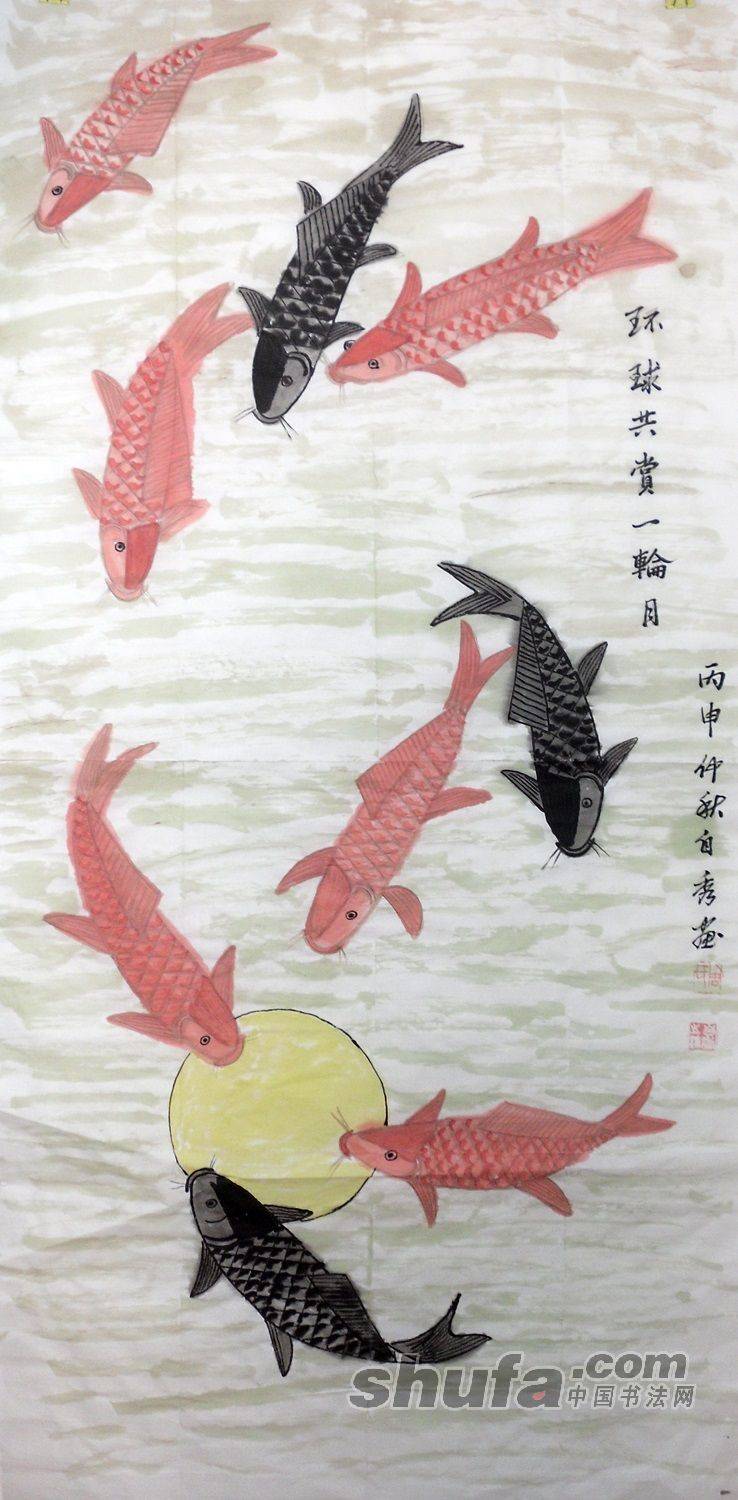 环球共赏一輪月
丙申仲秋自秀画
shufa.com
中国书法网